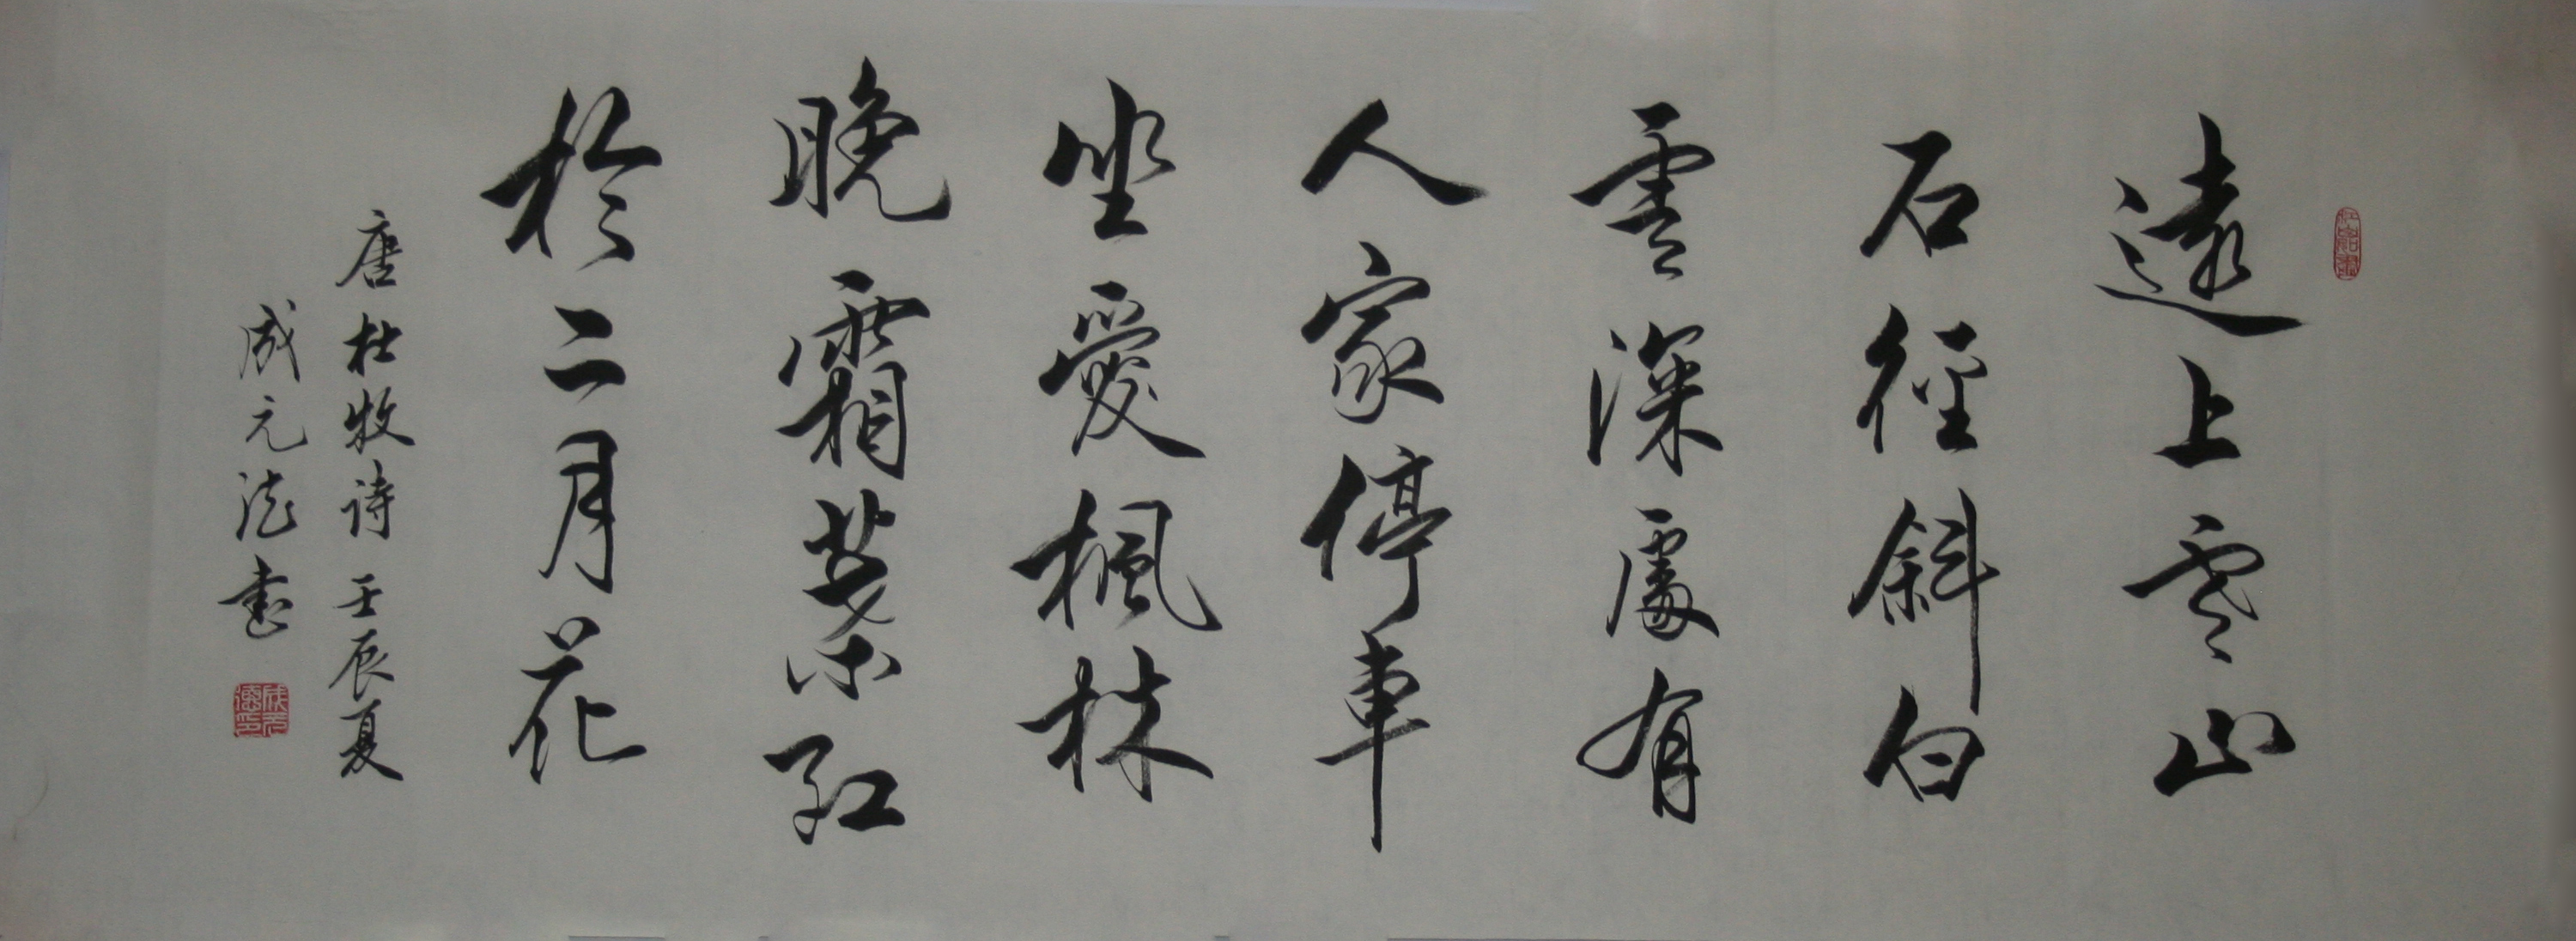 遠上寒山
石徑斜白
雲深處有
人家停車
坐愛楓林
晚霜葉紅
於二月花
唐杜牧诗壬辰夏
成元德書